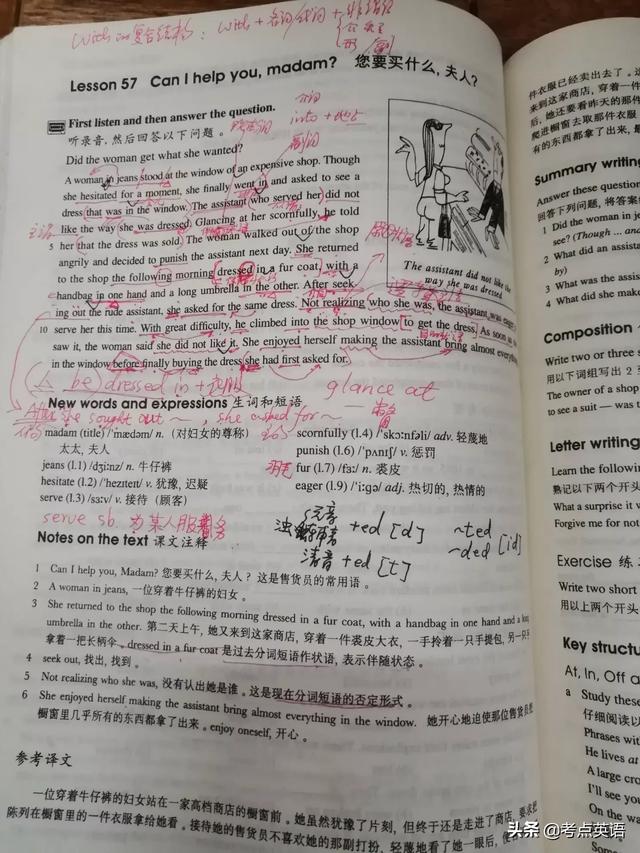 with的复合结构：with + 名词/代词 + 非谓语
介短
形/副
Lesson 57 Can I help you, madam? 您要买什么,夫人?
First listen and then answer the question.
听录音，然后回答以下问题。
介词
into + 地点
副词
Did the woman get what she wanted?
A woman in jeans stood at the window of an expensive shop. Though
she hesitated for a moment, she finally went in and asked to see a
dress that was in the window. The assistant who served her did not
like the way she was dressed. Glancing at her scornfully, he told
5 her that the dress was sold. The woman walked out of the shop
angrily and decided to punish the assistant next day. She returned
to the shop the following morning dressed in a fur coat, with a
handbag in one hand and a long umbrella in the other. After seek-
ing out the rude assistant, she asked for the same dress. Not realizing who she was, the assistant was eager
10 serve her this time. With great difficulty, he climbed into the shop window to get the dress. As soon as
saw it, the woman said she did not like it. She enjoyed herself making the assistant bring almost everything
in the window before finally buying the dress she had first asked for.
The assistant did not like the
way she was dressed
be dressed in +
glance at
New words and expressions 生词和短语
After she sought out ~, she asked for ~
madam (title) /'mædəm/ n.（对妇女的尊称）
太太, 夫人
jeans (l.1) /dʒi:nz/ n. 牛仔裤
hesitate (l.2) /'heziteit/ v. 犹豫, 迟疑
serve (l.3) /sə:v/ v. 接待（顾客）
scornfully (l.4) /'skɔ:nfəli/ adv. 轻蔑地
punish (l.6) /'pʌniʃ/ v. 惩罚
fur (l.7) /fə:/ n. 裘皮
eager (l.9) /'i:gə/ adj. 热切的, 热情的
serve sb. 为某人服务
元音
+ed [d]
清音 +ed [t]
~ted
~ded [id]
Notes on the text 课文注释
1 Can I help you, Madam? 您要买什么, 夫人？这是售货员的常用语。
2 A woman in jeans, 一位穿着牛仔裤的妇女。
3 She returned to the shop the following morning dressed in a fur coat, with a handbag in one hand and a long
umbrella in the other. 第二天上午, 她又来到这家商店, 穿着一件裘皮大衣, 一手拎着一只手提包, 另一只手
拿着一把长柄伞。dressed in a fur coat 是过去分词短语作状语, 表示伴随状态。
4 seek out, 找出, 找到。
5 Not realizing who she was, 没有认出她是谁。这是现在分词短语的否定形式。
6 She enjoyed herself making the assistant bring almost everything in the window. 她开心地迫使那位售货员把
橱窗里几乎所有的东西都拿了出来。enjoy oneself, 开心。
参考译文
一位穿着牛仔裤的妇女站在一家高档商店的橱窗前。她虽然犹豫了片刻, 但终于还是走进了商店, 要求把
陈列在橱窗里的一件衣服拿给她看。接待她的售货员不喜欢她的那副打扮, 轻蔑地看了她一眼后, 便告
件衣服已经卖出去了。
来到这家商店, 穿着一
后, 她还要看昨天的那件
爬进橱窗去取那件衣服
有的东西都拿了出来, 最
Summary writing
Answer these question
回答下列问题, 将答案
1 Did the woman in j
see? (Though ... and
2 What did an assistant
by)
3 What was the assis
4 What did she make
Composition
Write two or three s
用以下词组写出 2 至
The owner of a shop
to see a suit — was t
Letter writing
Learn the following
熟记以下两个开头
What a surprise it v
Forgive me for not
Exercise 练
Write two short
用以上两个开头
Key structu
At, In, Off a
a Study these
仔细阅读以
Phrases with
He lives at
A large cro
I'll see you
On the wa
Some
头条 @考点英语